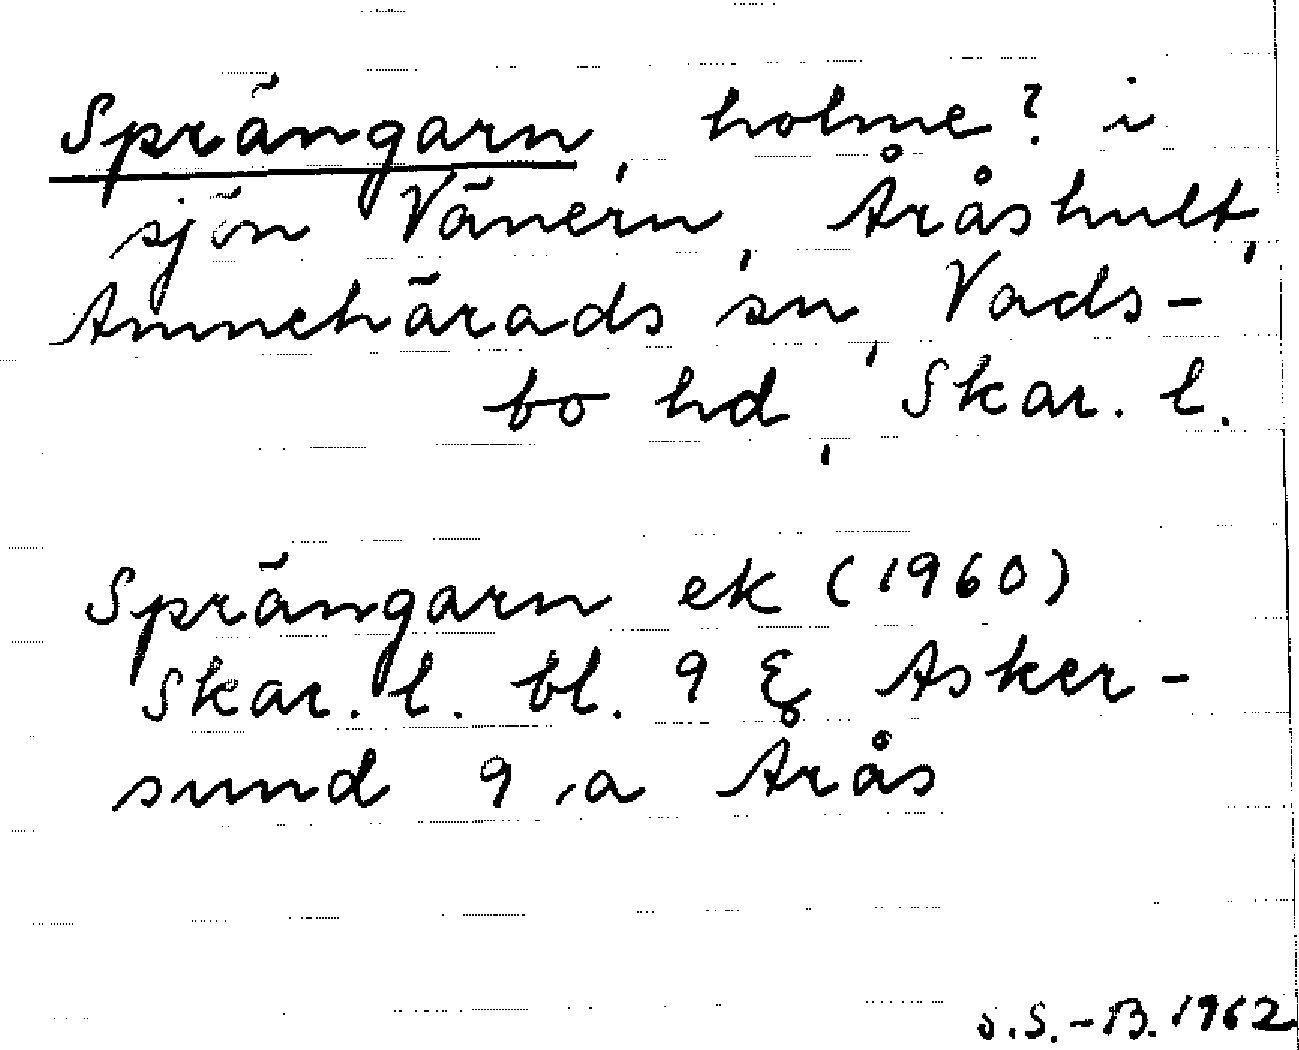 Sprängarn, holme? i
sjön Vänern, Åråshult,
Amnehärads sn, Vads-
bo hd, Skar. l.
Sprängarn ek (1960)
Skar. l. bl. 9 & Asker-
sund 9 a Årås
S.S.-B. 1962